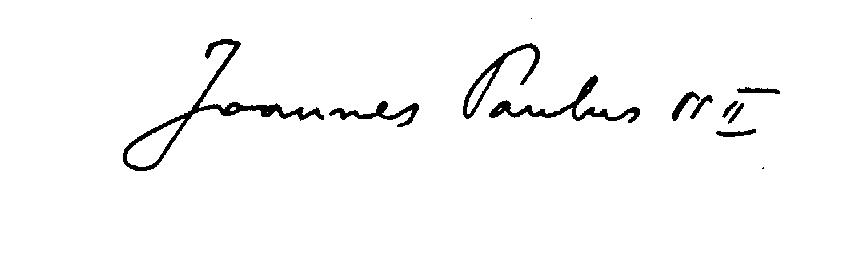 Joannes Paulus PP II